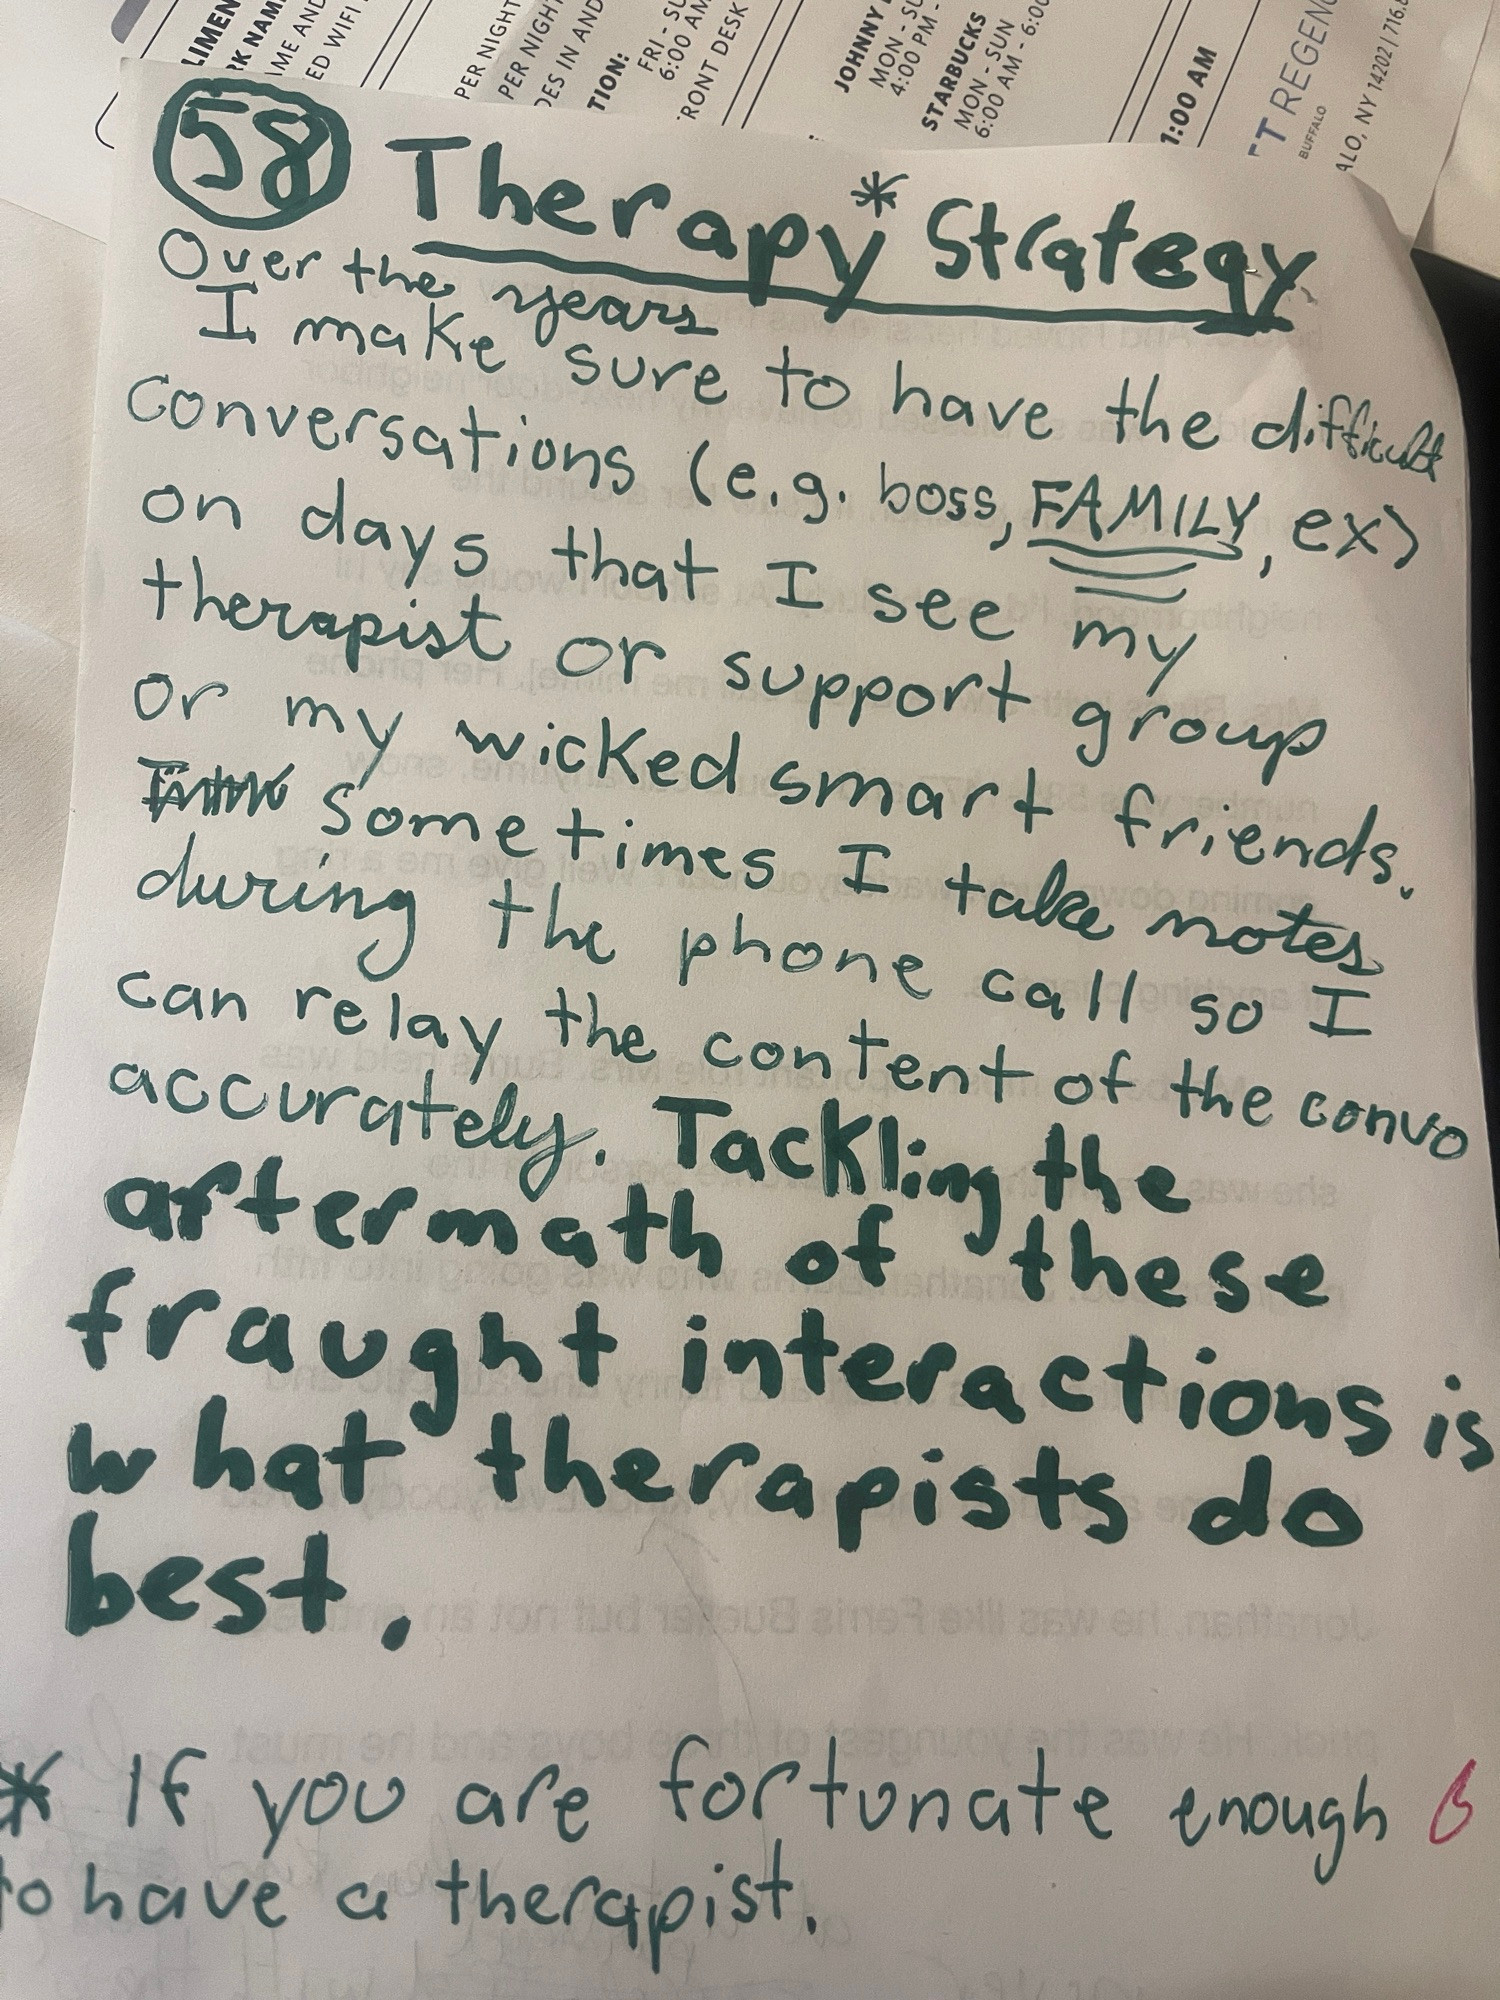 LIMEN
RK NAM
AME AND
ED WIFI
PER NIGHT
PER NIGHT
DES IN AND
TION:
FRI - SU
6:00 AM
RONT DESK
JOHNNY
MON - SU
4:00 PM -
STARBUCKS
MON - SUN
6:00 AM - 6:00
1:00 AM
T REGENC
BUFFALO
ALO, NY 14202 | 716.8
58 Therapy* Strategy
Over the years
I make sure to have the difficult
conversations (e.g. boss, FAMILY, ex)
on days that I see my
therapist or support group
or my wicked smart friends.
Sometimes I take notes
during the phone call so I
can relay the content of the convo
accurately. Tackling the
aftermath of these
fraught interactions is
what therapists do
best.
* If you are fortunate enough
to have a therapist.